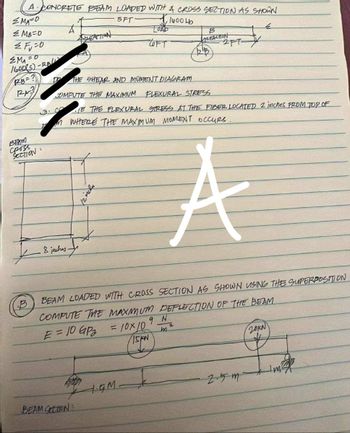 A. CONCRETE BEAM LOADED WITH A CROSS SECTION AS SHOWN
ΣMA=0
ΣMB=0
ΣFy=0
ΣMA=0
1600(5)-RB
RB=?
RA=?
5FT
1600lb
LOAD
A
B
REACTION
REACTION
6FT
2FT
THE SHEAR AND MOMENT DIAGRAM
COMPUTE THE MAXIMUM FLEXURAL STRESS
3. THE FLEXURAL STRESS AT THE FIBER LOCATED 2 inches FROM TOP OF
WHERE THE MAXIMUM MOMENT OCCURS.
BEAM
CROSS
SECTION:
12 inches
8 inches
A
B BEAM LOADED WITH CROSS SECTION AS SHOWN USING THE SUPERPOSITION
COMPUTE THE MAXIMUM DEFLECTION OF THE BEAM
E = 10 GPa = 10x10⁹ N/m²
15kN
20kN
1.5M
2.5 m
1m
BEAM SECTION: